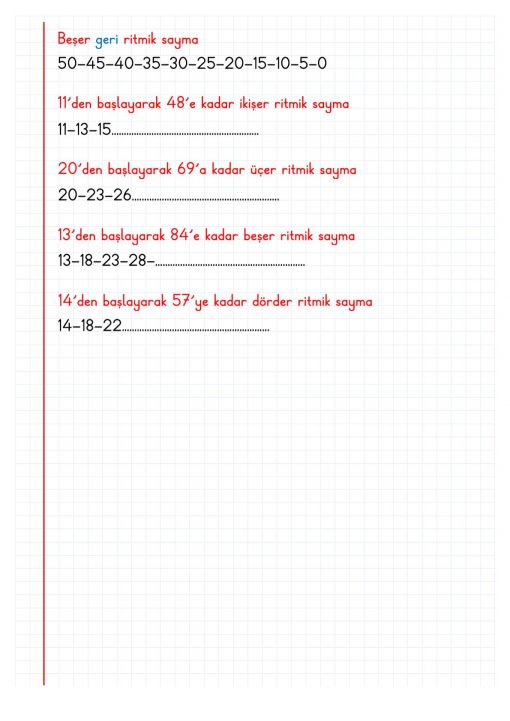 Beşer geri ritmik sayma
50-45-40-35-30-25-20-15-10-5-0
11'den başlayarak 48'e kadar ikişer ritmik sayma
11-13-15............................................................
20'den başlayarak 69'a kadar üçer ritmik sayma
20-23-26............................................................
13'den başlayarak 84'e kadar beşer ritmik sayma
13-18-23-28-............................................................
14'den başlayarak 57'ye kadar dörder ritmik sayma
14-18-22............................................................